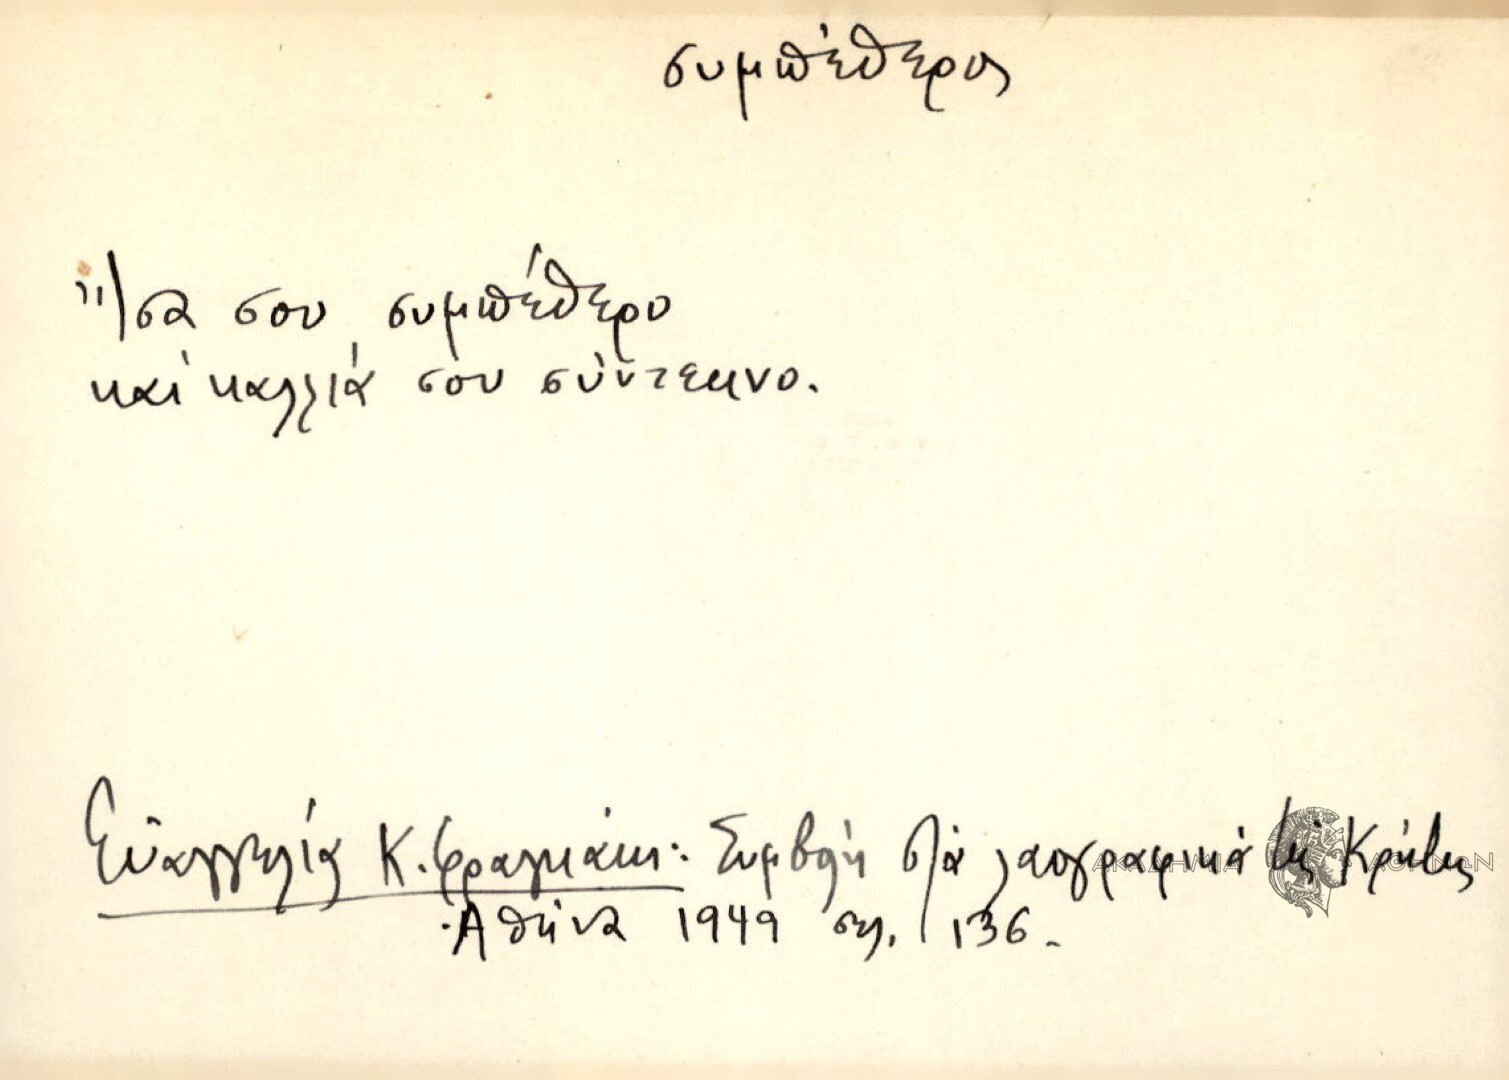 συμπέθερος
Ἴσα σου συμπέθερο
καὶ καλλιά σου σύντεκνο.
Εὐαγγελία Κ. Φραγκάκι: Συμβολὴ στὰ λαογραφικὰ τῆς Κρήτης
Ἀθήνα 1949 σελ. 136.